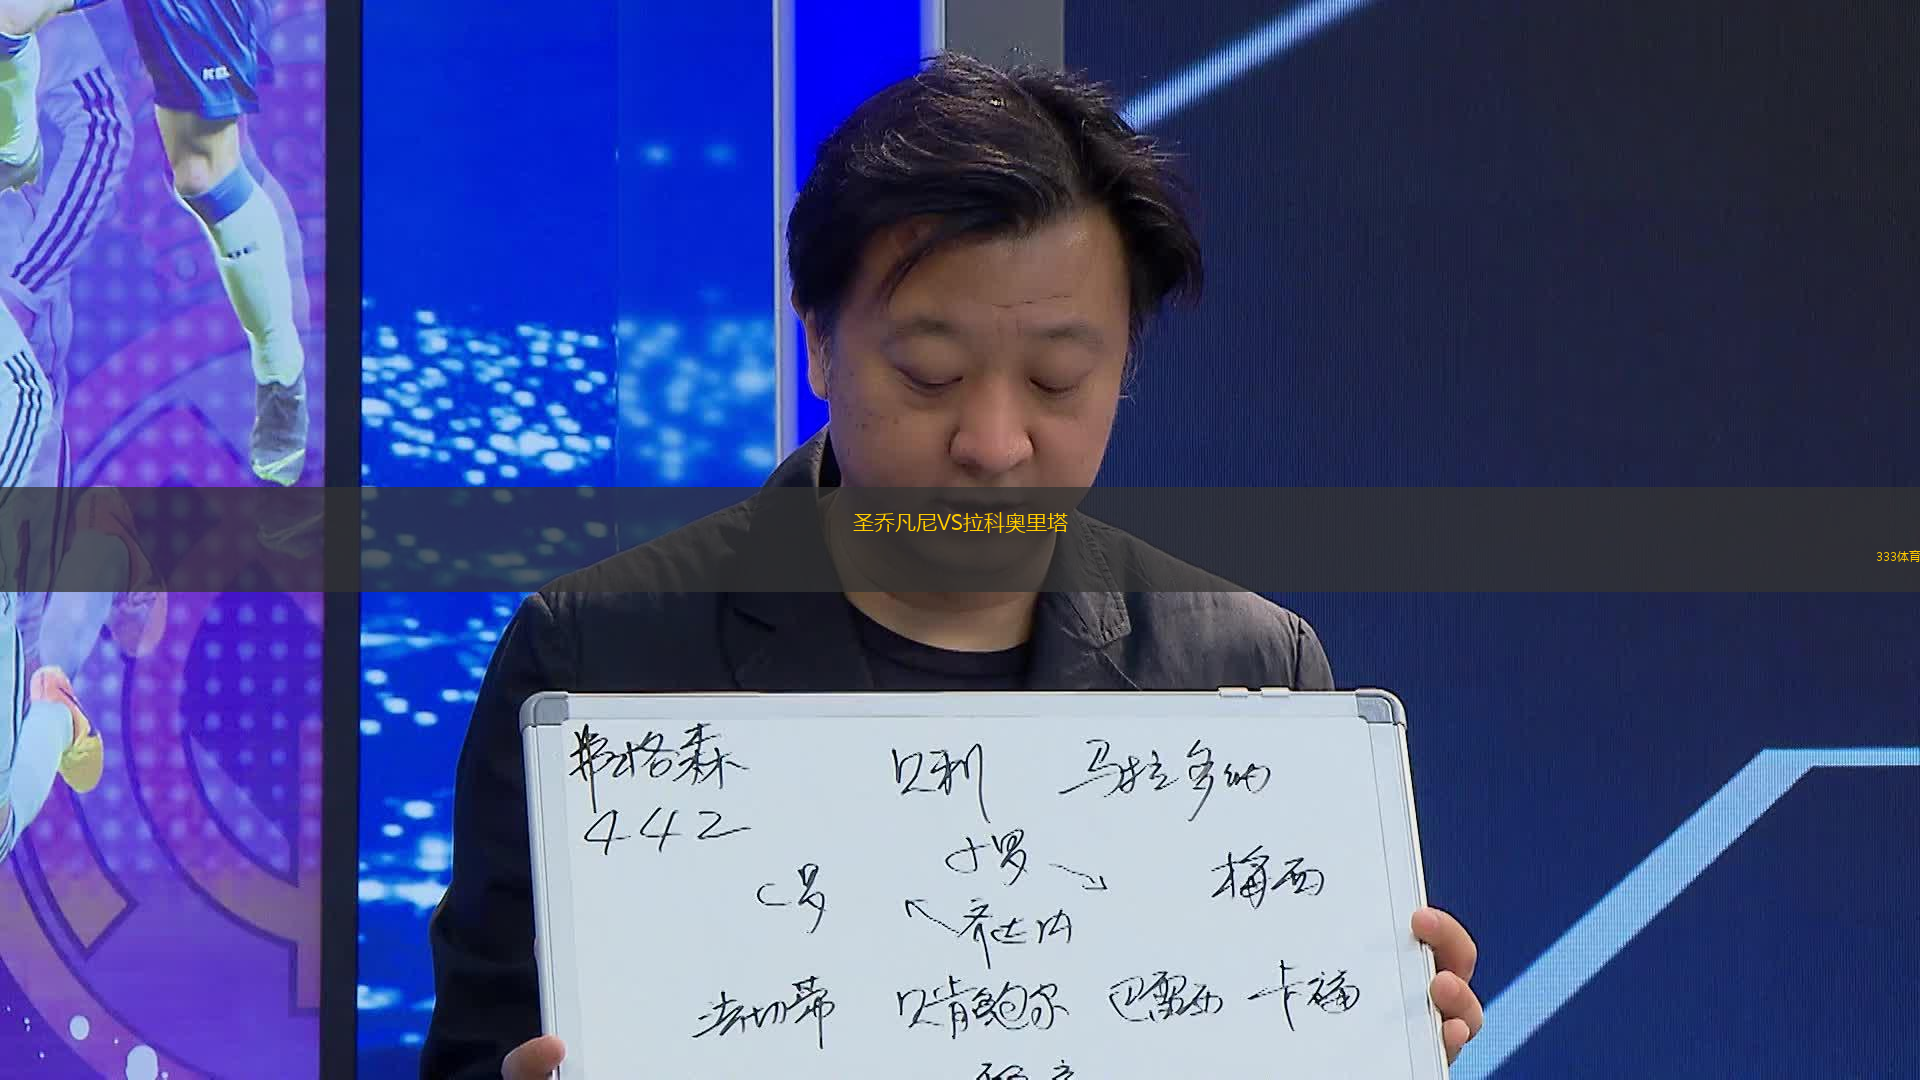 圣乔凡尼VS拉科奥里塔
333体育
弗格森 贝利 马拉多纳
442
小罗
C罗 梅西
齐达内
法切蒂 贝肯鲍尔 巴雷西 卡福